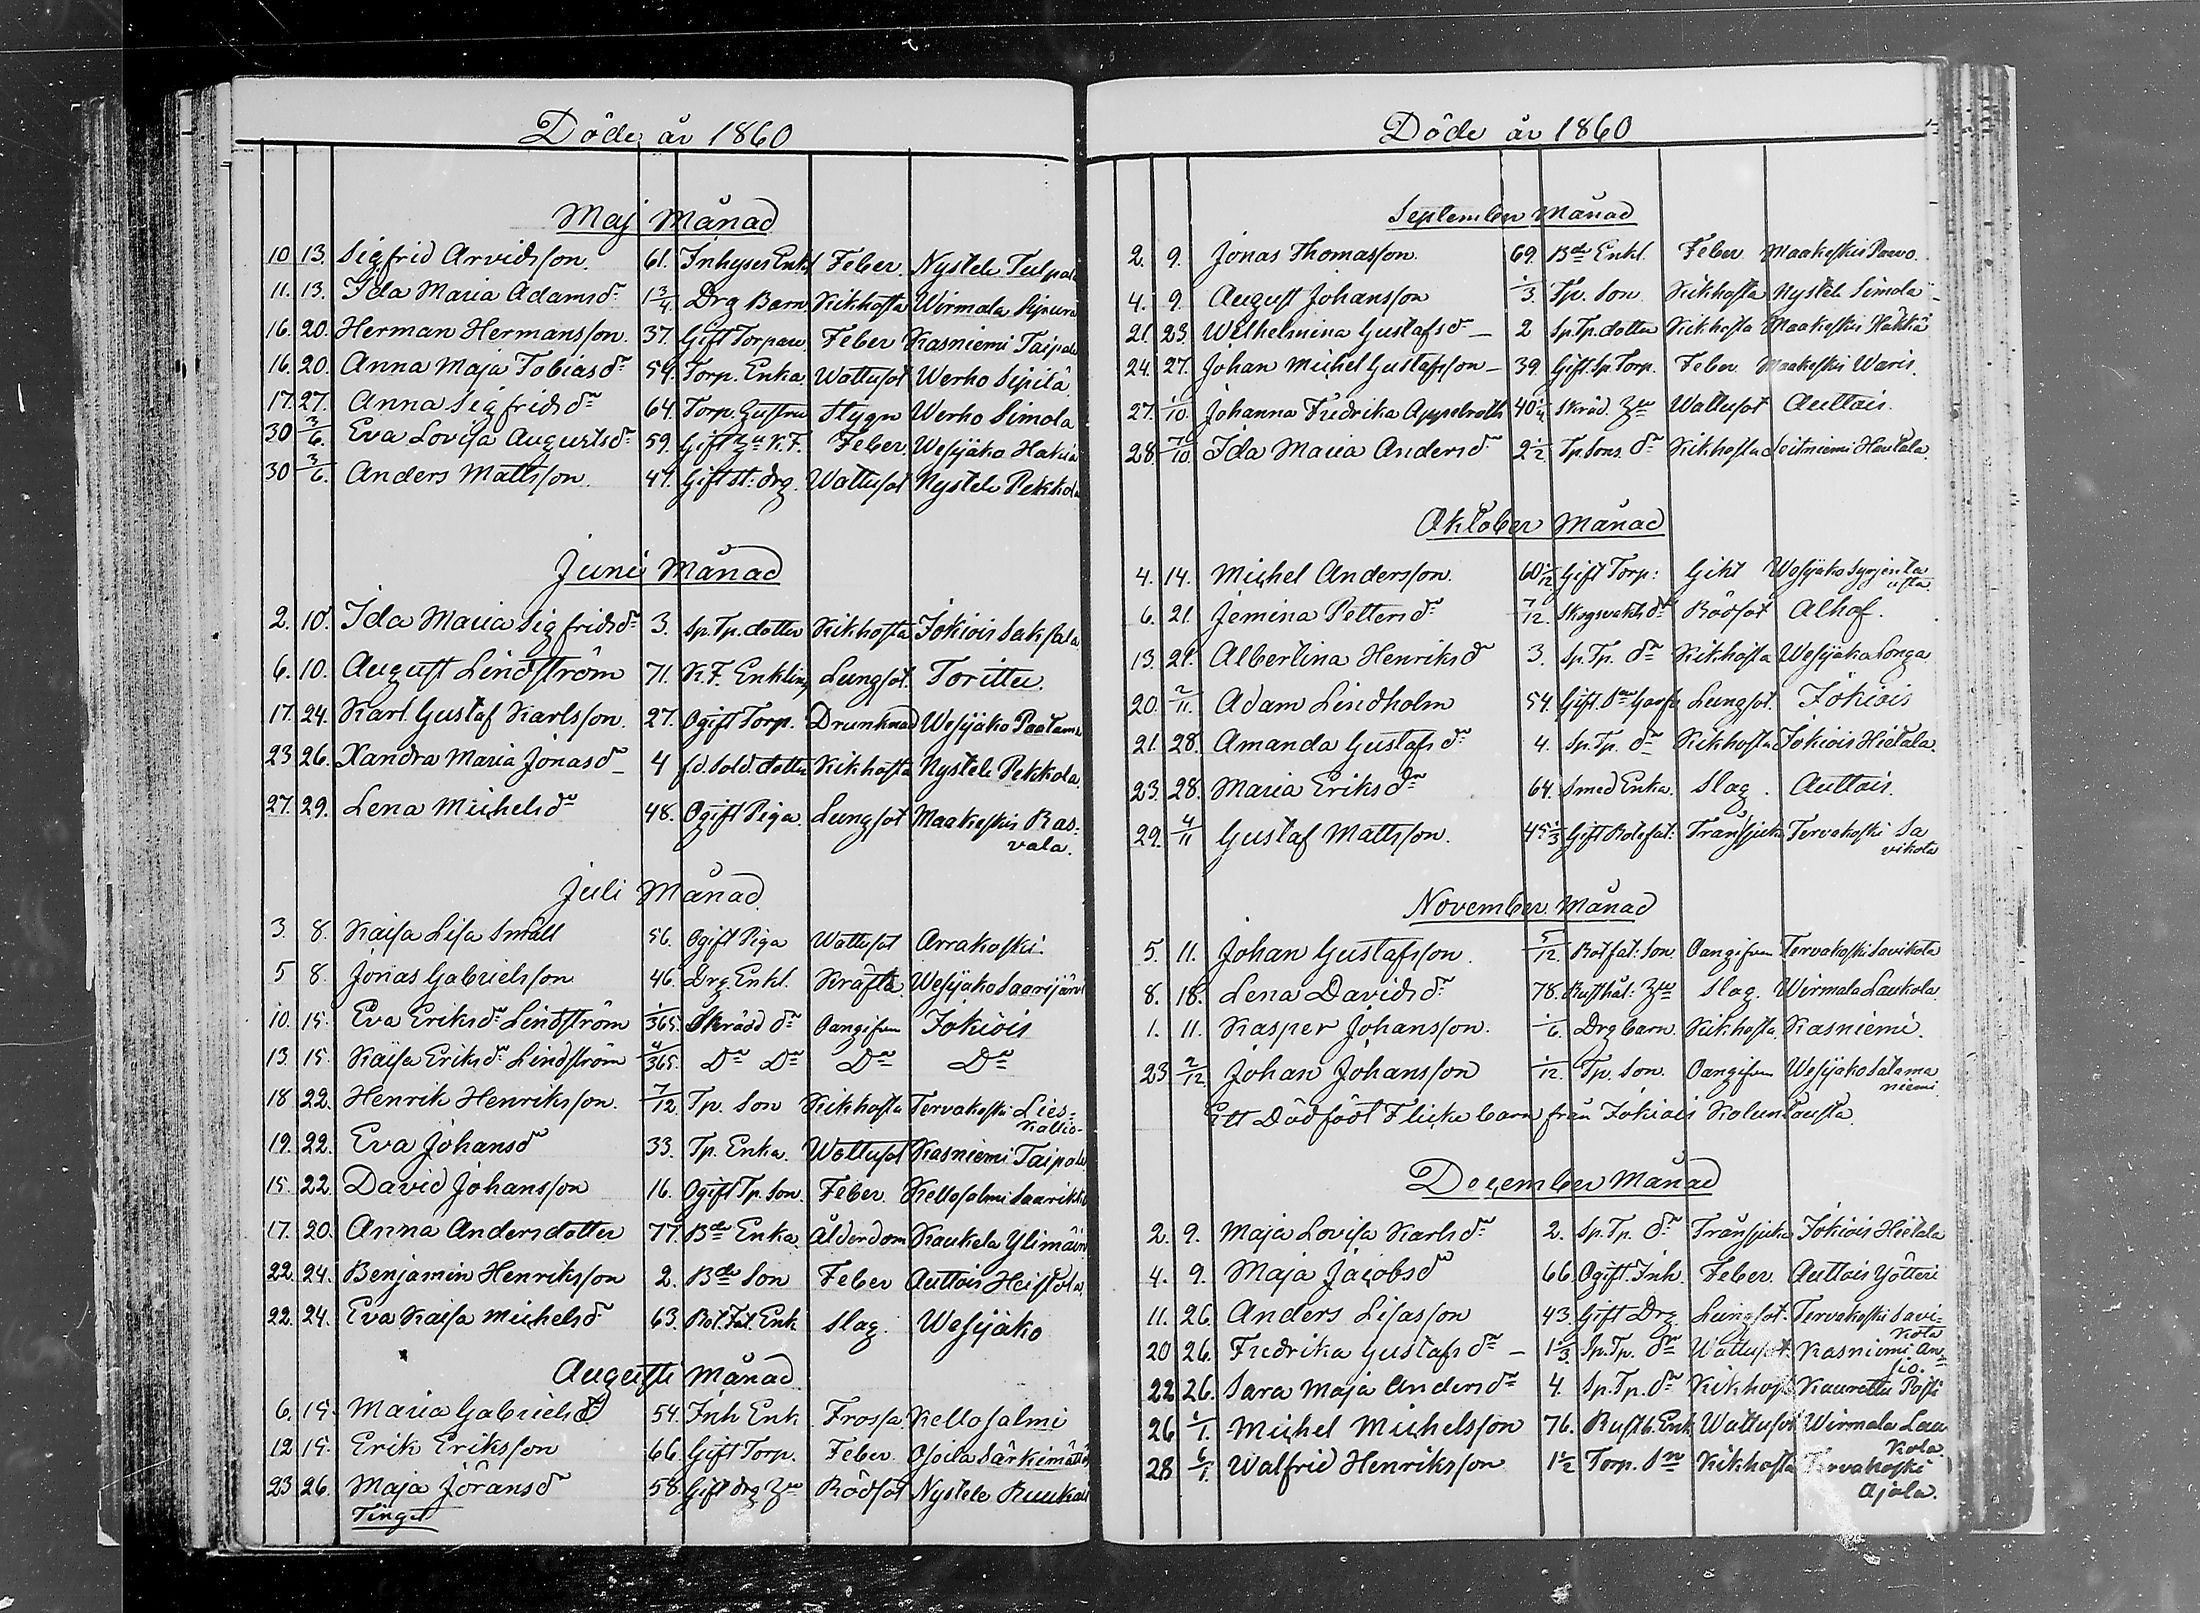 Döde år 1860
Maj Månad
10 13. Sigfrid Arvidsson. 61. Inhyses Enkl Feber Nystele Tulpala
11. 13. Ida Maria Adamsdr 1 3/4 Drg Barn Kikhosta Wirmala
16. 20. Herman Hermansson. 37. Gift Torpare Feber Kasniemi Taipale
16. 20. Anna Maja Tobiasdr 59. Torp. Enka. Wattusot Werho Sipilä
17. 27. Anna Sigfridsdr 64. Torp. Hustru Werho Simola
30 3/6. Eva Lovisa Augustsdr 59. Gift K.F. Feber Wesijako
30 3/6. Anders Mattsson. 49. Gift st: drg. Wattusot Nystele Pekkola
Juni Månad
2. 10. Ida Maria Sigfridsdr 3. Sp. Tp. dotter Kikhosta Jokiois Saksala
6. 10. August Lindström 71. K.F. Enkling Lungsot. Torittu.
17. 24. Karl Gustaf Karlsson. 27. Ogift Torp. Drunknad Wesijako
23 26. Xandra Maria Jonasdr 4 f.d. Sold. dotter Kikhosta Nystele Pekkola
27. 29. Lena Michelsdr 48. Ogift Piga. Lungsot Maakeskis Ras-
vala.
Juli Månad
3. 8. Kaisa Lisa Smäll 56. Ogift Piga Wattusot Arrakoski.
5 8. Jonas Gabrielsson 46. Drg. Enkl. Kräfta. Wesijako Saarijärvi
10. 15. Eva Eriksdr Lindström 1/365. Skrädd dr Oangifven Jokiois
13. 15. Kaisa Eriksdr Lindström 4/365. Do Do Do Do
18 22. Henrik Henriksson. 7/12 Tp. Son Kikhosta Tervakoski Lies-
kallio-
19. 22. Eva Johansdr 33. Tp. Enka. Wattusot Kasniemi Taipale
15. 22 David Johansson 16. Ogift Tp. Son. Feber Kellosalmi
17. 20. Anna Andersdotter 77. Bde Enka. Ålderdom Kaukela
22. 24. Benjamin Henriksson 2. Bde Son Feber Auttois Heikkola
22. 24. Eva Kaisa Michelsdr 63. Rot. Fat. Enk Slag. Wesijako
Augusti Månad
6. 15. Maria Gabrielsdr 54. Inh Enk Frossa. Kellosalmi
12 15. Erik Eriksson 66. Gift Torp. Feber Osoila
23 26. Maja Jöransdr 58. Gift drg Rödsot Nystele
Tinget
Döde år 1860
September Månad
2. 9. Jonas Thomasson. 69. Bde Enkl. Feber Maakeskis Paavo.
4. 9. August Johansson 1/3. Tp. Son Kikhosta Nystele Simola
21. 23. Wilhelmina Gustafsdr 2 Sp. Tp. dotter Kikhosta Maakeskis
24. 27. Johan Michel Gustafsson 39. Gift. Sp Torp. Feber Maakeskis Waris.
27. 1/10. Johanna Fredrika Appelroth 40 1/4. Skräd. Wattusot Auttois.
28. 7/10. Ida Maria Andersdr 2 1/2. Tp. Sons. dr Kikhosta Seitniemi Hautala
Oktober Månad
4. 14. Michel Andersson. 60 1/12 Gift Torp: Gikt Wesijako
6. 21. Jemina Pettersdr 7/12. Skogsvakts dr Rödsot Alhof.
13. 21. Albertina Henriksdr 3. Sp. Tp. dr Kikhosta Wesijako Longa
20. 2/11. Adam Lindholm 54. Gift. Lungsot. Jokiois
21. 28. Amanda Gustafsdr 4. Sp. Tp. dr Kikhosta Jokiois Hietala.
23. 28. Maria Eriksdr 64. Smed Enka. Slag. Auttois.
29. 4/11 Gustaf Mattsson. 45 1/3 Gift Rotefat: Transjuka Tervakoski Sa
vikota
November Månad
5. 11. Johan Gustafsson. 5/12 Rotfat: Son. Oangifven Tervakoski Savikota
8. 18. Lena Davidsdr 78. Rusthål: Slag. Wirmala Laukola
1. 11. Kasper Johansson. 1/6. Drg barn. Kikhosta. Kasniemi.
23 2/12. Johan Johansson 1/12. Tp. Son. Oangifven Wesijako Salama
niemi
Ett Dödfödt Flicke barn från Jokiois Kolunkausta.
December Månad
2. 9. Maja Lovisa Karlsdr 2. Sp. Tp. dr Transjuka Jokiois Hietala
4. 9. Maja Jacobsdr 66. Ogift. Inh. Feber. Auttois Yötteri
11. 26. Anders Lisasson 43. Gift Drg Lungsot. Tervakoski Savi-
kota
20 26. Fredrika Gustafsdr 1 1/3. Sp. Tp. dr Wattusot. Kasniemi An-
sio.
22 26. Sara Maja Andersdr 4. Sp. Tp. dr Kikhos Kaurettu Posti
26 1/1. Michel Michelsson 76. Rusth. Enk Wattusot Wirmala Lau
kola
28 6/1. Walfrid Henriksson 1 1/2 Torp. Sn Kikhosta Tervakoski
Ajola.